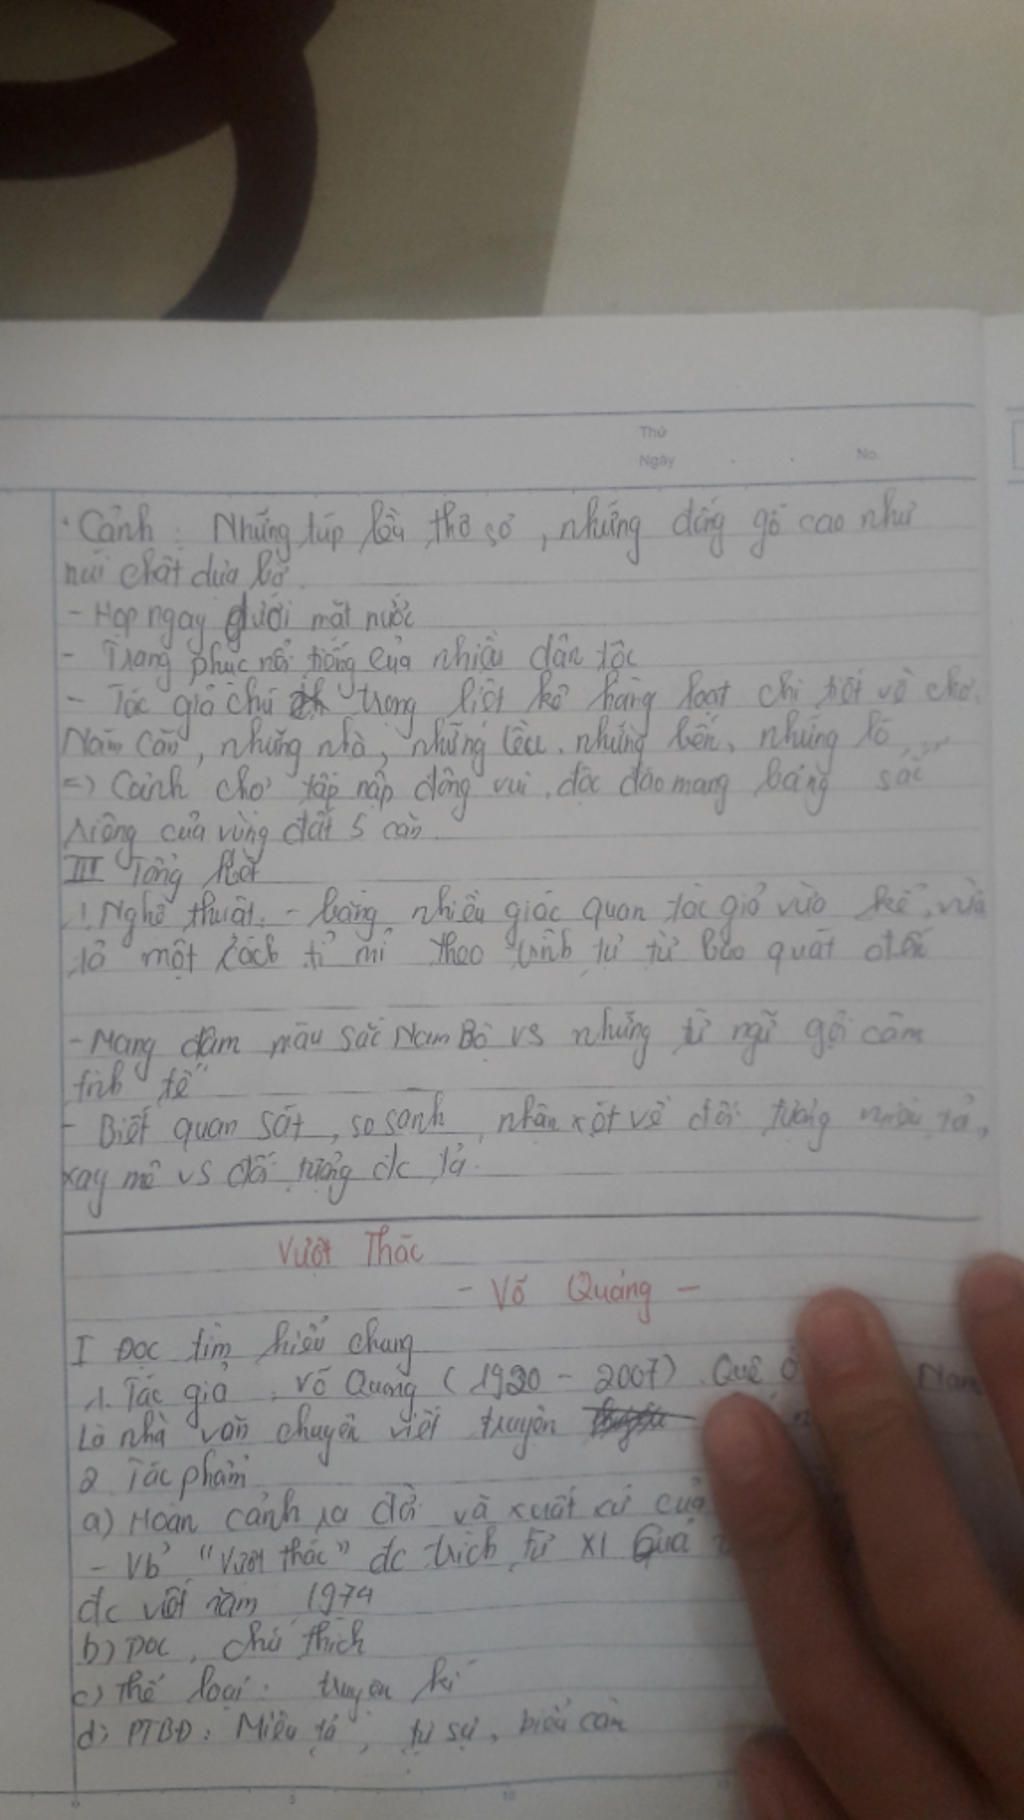 Thứ
Ngày No.
· Cảnh : Những túp lều thô sơ, những đống gỗ cao như
núi chất dựa bờ.
- Họp ngay dưới mặt nước
- Trang phục nổi tiếng của nhiều dân tộc
- Tác giả chú trọng liệt kê hàng loạt chi tiết về chợ
Năm Căn, những nhà, những lều, những bến, những lò....
=> Cảnh chợ tấp nập đông vui, độc đáo mang bảng sắc
riêng của vùng đất 5 căn
III Tổng kết
1. Nghệ thuật. - bằng nhiều giác quan tác giả vừa kể, vừa
tả một cách tỉ mỉ theo trình tự từ bao quát
- Mang đậm màu sắc Nam Bộ vs những từ ngữ gợi cảm
tinh tế
- Biết quan sát, so sánh, nhận xét về đối tượng miêu tả,
xay mê vs đối tượng đc tả.
Vượt Thác
- Võ Quảng -
I Đọc tìm hiểu chung
1. Tác giả : Võ Quảng (1920 - 2007). Quê ở Nam
Là nhà văn chuyên viết truyện
2 Tác phẩm
a) Hoàn cảnh ra đời và xuất xứ của
- Vb "Vượt thác" đc trích từ XI Quá
đc viết năm 1974
b) Đọc, chú thích
c) Thể loại : truyện kí
d) PTBĐ : Miêu tả, tự sự, biểu cảm
0 5 10